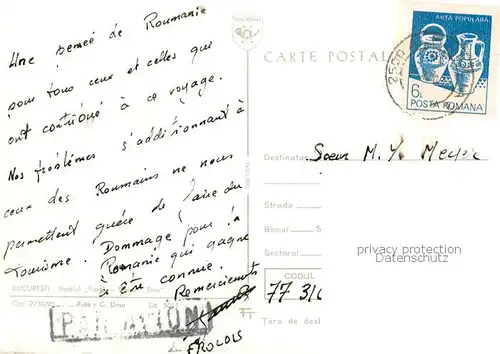 Une pensée de Roumanie
pour tous ceux et celles qui
ont contribué à ce voyage.
Nos problèmes s'additionnant à
ceux des Roumains ne nous
permettent guère de faire du
tourisme. Dommage pour la
Romanie qui gagne
à être connue.
Remerciements
FROLOIS
BUCUREȘTI
Foto: C. Dinu
PAR AVION
CARTE POSTAL
ARTA POPULARĂ
6L
POSTA ROMANA
2500
Destinatar
Soeur M. Y. Meyer
Strada
Blocul S
Sectorul
privacy protection
Datenschutz
CODUL
77 31
Țara de dest